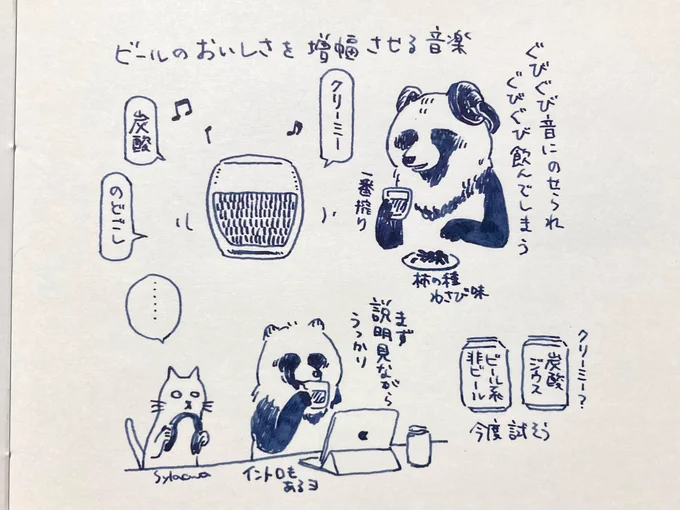 ビールのおいしさを増幅させる音楽
ぐびぐび音にのせられ
ぐびぐび飲んでしまう
クリーミー
炭酸
のどごし
一番搾り
柿の種
わさび味
……
まず
説明見ながら
うっかり
イントロも
あるヨ
クリーミー?
炭酸
ジュース
ビール系
非ビール
今度試そう